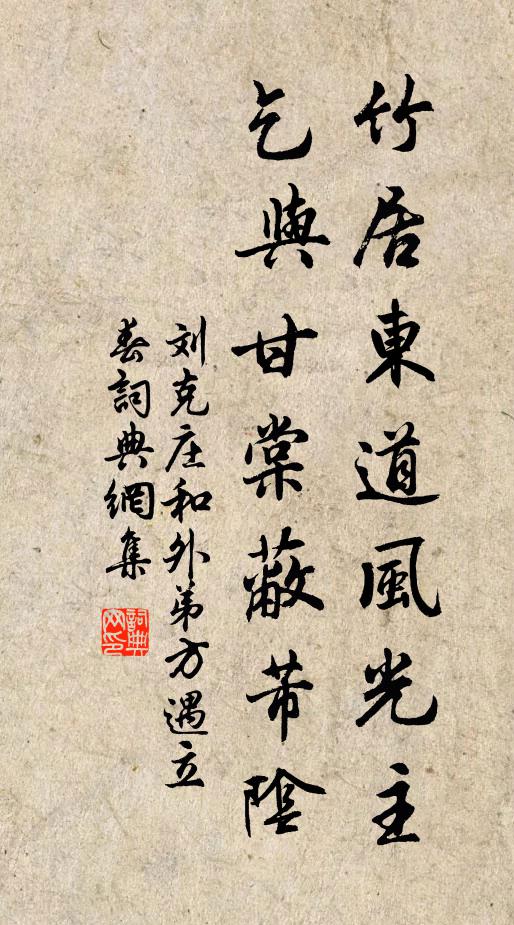 竹居東道風光主
乞與甘棠蔽芾陰
刘克庄和外弟方遇立
春詞典網集
詞典网印